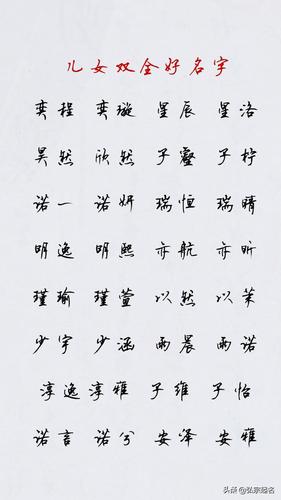 儿女双全好名字
奕程 奕璇 星辰 星洛
昊然 欣然 子壑 子柠
诺一 诺妍 瑞恒 瑞晴
明逸 明熙 亦航 亦昕
瑾瑜 瑾萱 以然 以茉
少宇 少涵 雨晨 雨诺
淳逸 淳雅 子维 子怡
诺言 诺兮 安泽 安雅
头条 @弘宗起名